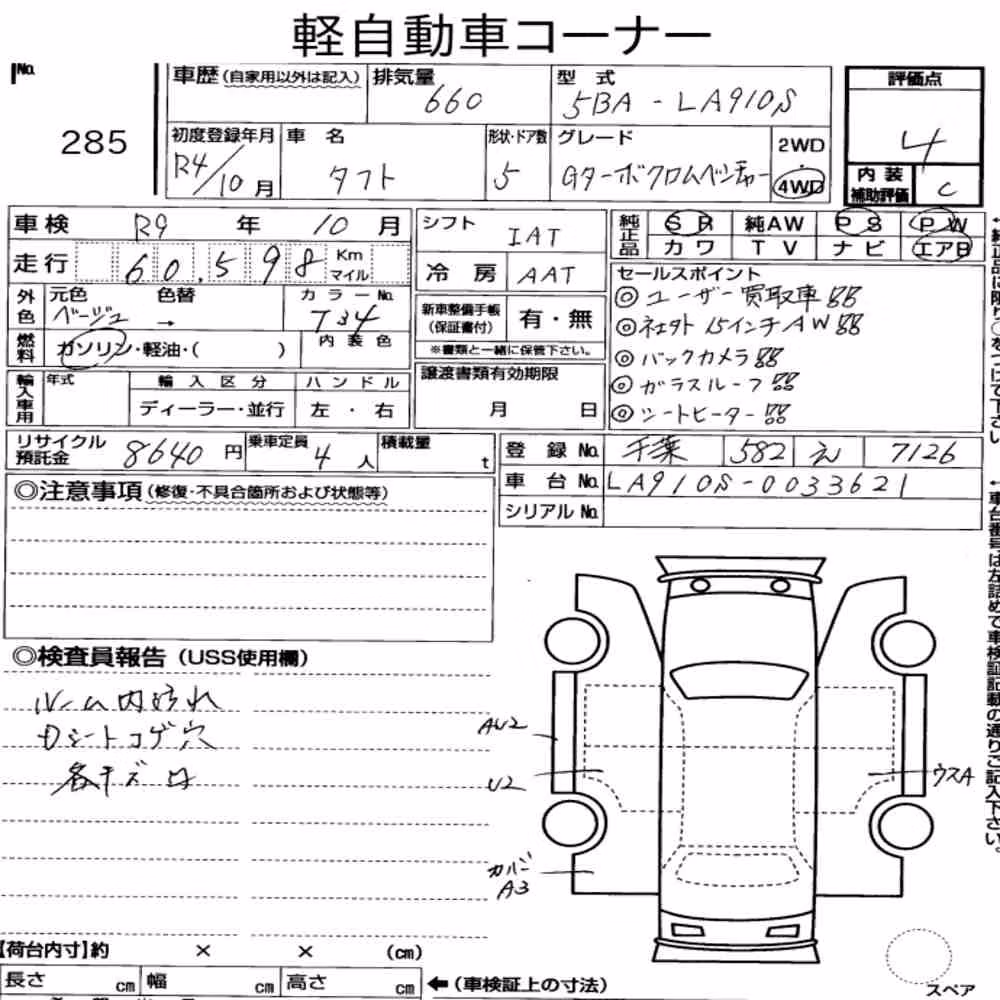 軽自動車コーナー
No. 285
車歴(自家用以外は記入)
排気量 660
型式 5BA-LA910S
評価点 4
内装補助評価 C
初度登録年月 R4/10月
車名 タフト
形状・ドア数 5
グレード Gターボクロムベンチャー
2WD・4WD
車検 R9年 10月
走行 60,598 Km マイル
外色 元色 ベージュ 色替 → カラーNo. T34
燃料 ガソリン・軽油・( ) 内装色
輸入車用 年式 輸入区分 ディーラー・並行 ハンドル 左・右
シフト IAT
冷房 AAT
新車整備手帳(保証書付) 有・無
※書類と一緒に保管下さい。
譲渡書類有効期限
月 日
純正品 SR 純AW PS PW
カワ TV ナビ エアB
セールスポイント
◎ユーザー買取車!!
◎社外15インチAW!!
◎バックカメラ!!
◎ガラスルーフ!!
◎シートヒーター!!
リサイクル預託金 8640円
乗車定員 4人
積載量 t
登録No. 千葉 582 え 7126
車台No. LA910S-0033621
シリアルNo.
◎注意事項(修復・不具合箇所および状態等)
◎検査員報告(USS使用欄)
ルーム内汚れ
Dシートコゲ穴
各キズ凹
AU2
U2
カバー
A3
ウスA
【荷台内寸】約 × × (cm)
長さ cm 幅 cm 高さ cm
←(車検証上の寸法)
スペア
←純正品に限り○をつけて下さい
←車台番号は左詰めで車検証記載の通りご記入下さい。